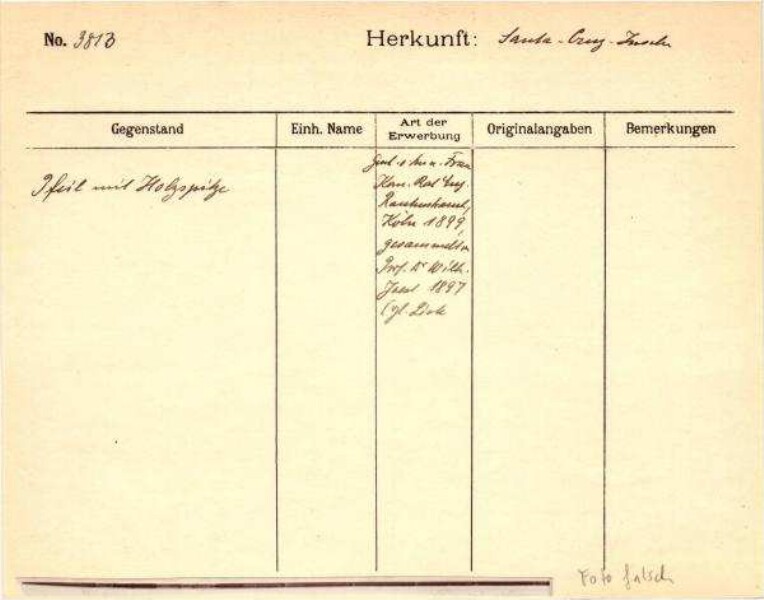 No. 3813 Herkunft: Santa-Cruz-Inseln
Gegenstand Einh. Name Art der Erwerbung Originalangaben Bemerkungen
Pfeil mit Holzspitze
Gesch. v. Frau
Kom. Rat Eug.
Rautenstrauch,
Köln 1899,
gesammelt v.
Prof. Dr Wilh.
Joest 1897
(vgl. Liste
Foto falsch